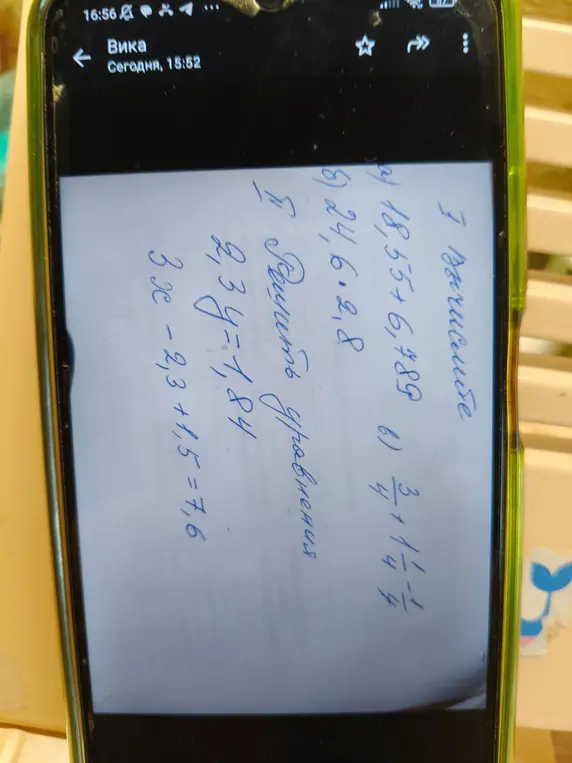 16:56
Вика
Сегодня, 15:52
I Вычислите
а) 18,55+6,789 в) 3/4 + 1 1/4 - 1/4
б) 24,6·2,8
II Решить уравнения
2,3y=1,84
3x-2,3+1,5=7,6